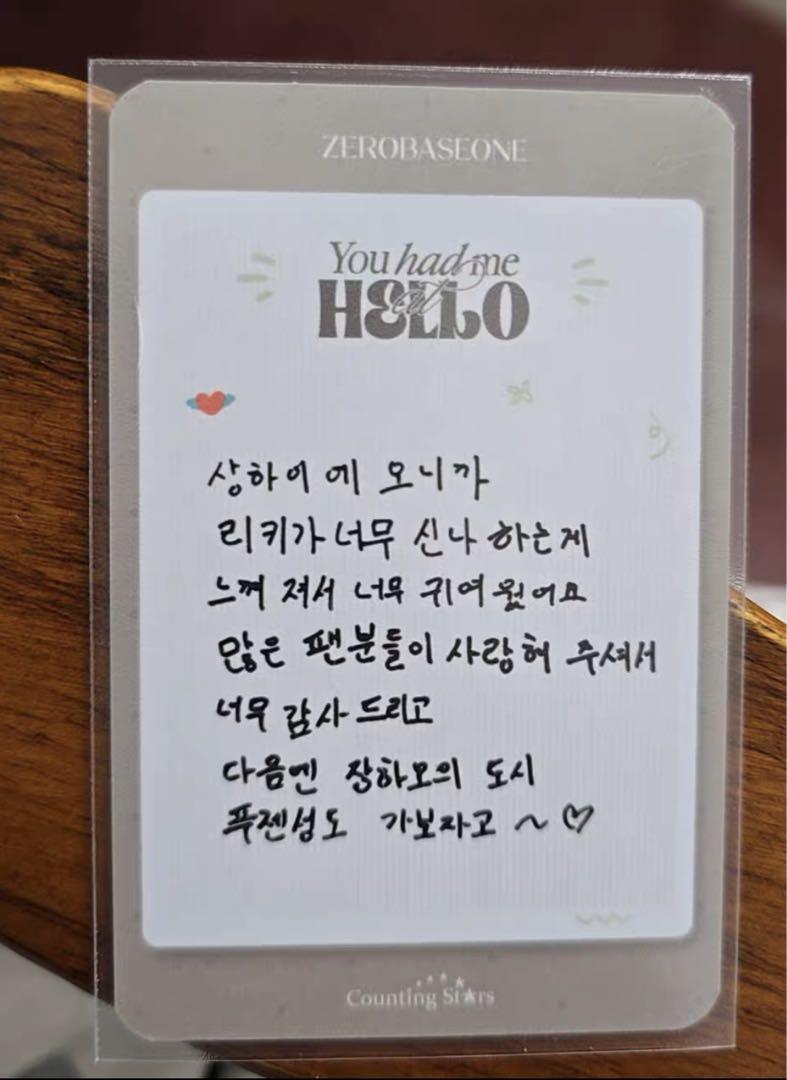 ZEROBASEONE
You had me
at
HELLO
상하이에 오니까
리키가 너무 신나 하는게
느껴 져서 너무 귀여웠어요
많은 팬분들이 사랑해 주셔서
너무 감사드리고
다음엔 장하오의 도시
푸젠성도 가보자고 ~ ♡
Counting Stars